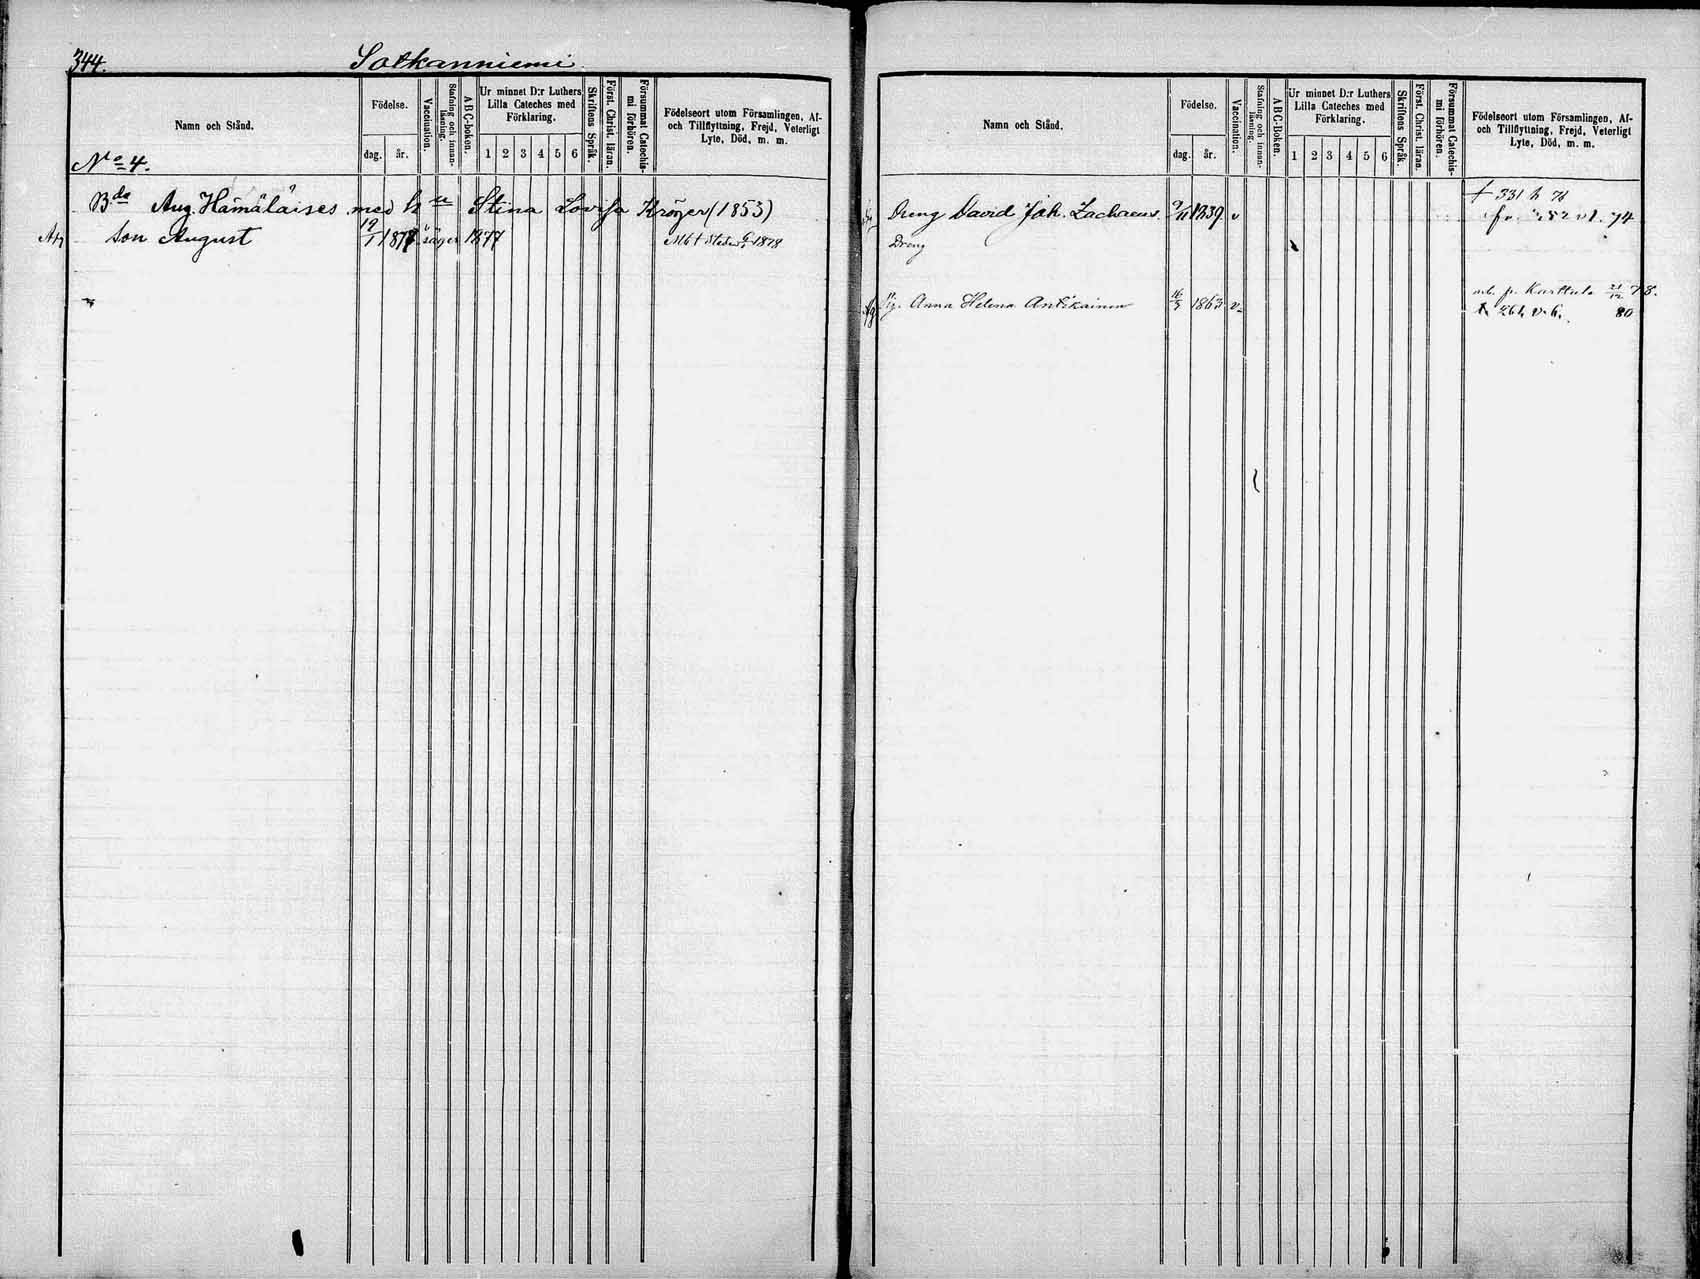 344. Sotkanniemi
Namn och Stånd.
Födelse.
dag. år.
Vaccination.
Stafning och innan-läsning.
A B C-boken.
Ur minnet D:r Luthers
Lilla Cateches med
Förklaring.
1 2 3 4 5 6
Skriftens Språk.
Först. Christ. läran.
Försummat Catechis-
mi förhören.
Födelseort utom Församlingen, Af-
och Tillflyttning, Frejd, Veterligt
Lyte, Död, m. m.
No 4.
Bde Aug. Hämäläises med hu Stina Lovisa Kröger (1853)
son August 19/1 1878 säger 1877
1878
Namn och Stånd.
Födelse.
dag. år.
Vaccination.
Stafning och innan-läsning.
A B C-Boken.
Ur minnet D:r Luthers
Lilla Cateches med
Förklaring.
1 2 3 4 5 6
Skriftens Språk.
Först. Christ. läran.
Försummat Catechis-
mi förhören.
Födelseort utom Församlingen, Af-
och Tillflyttning, Frejd, Veterligt
Lyte, Död, m. m.
331 h 76
Dreng David Joh. Zachaeus 9/11 1839 v fr. 74
Dreng
p. Karttula 21/12 78.
Pig. Anna Helena Antikainen 16/3 1863 v. 264 v. 6. 80